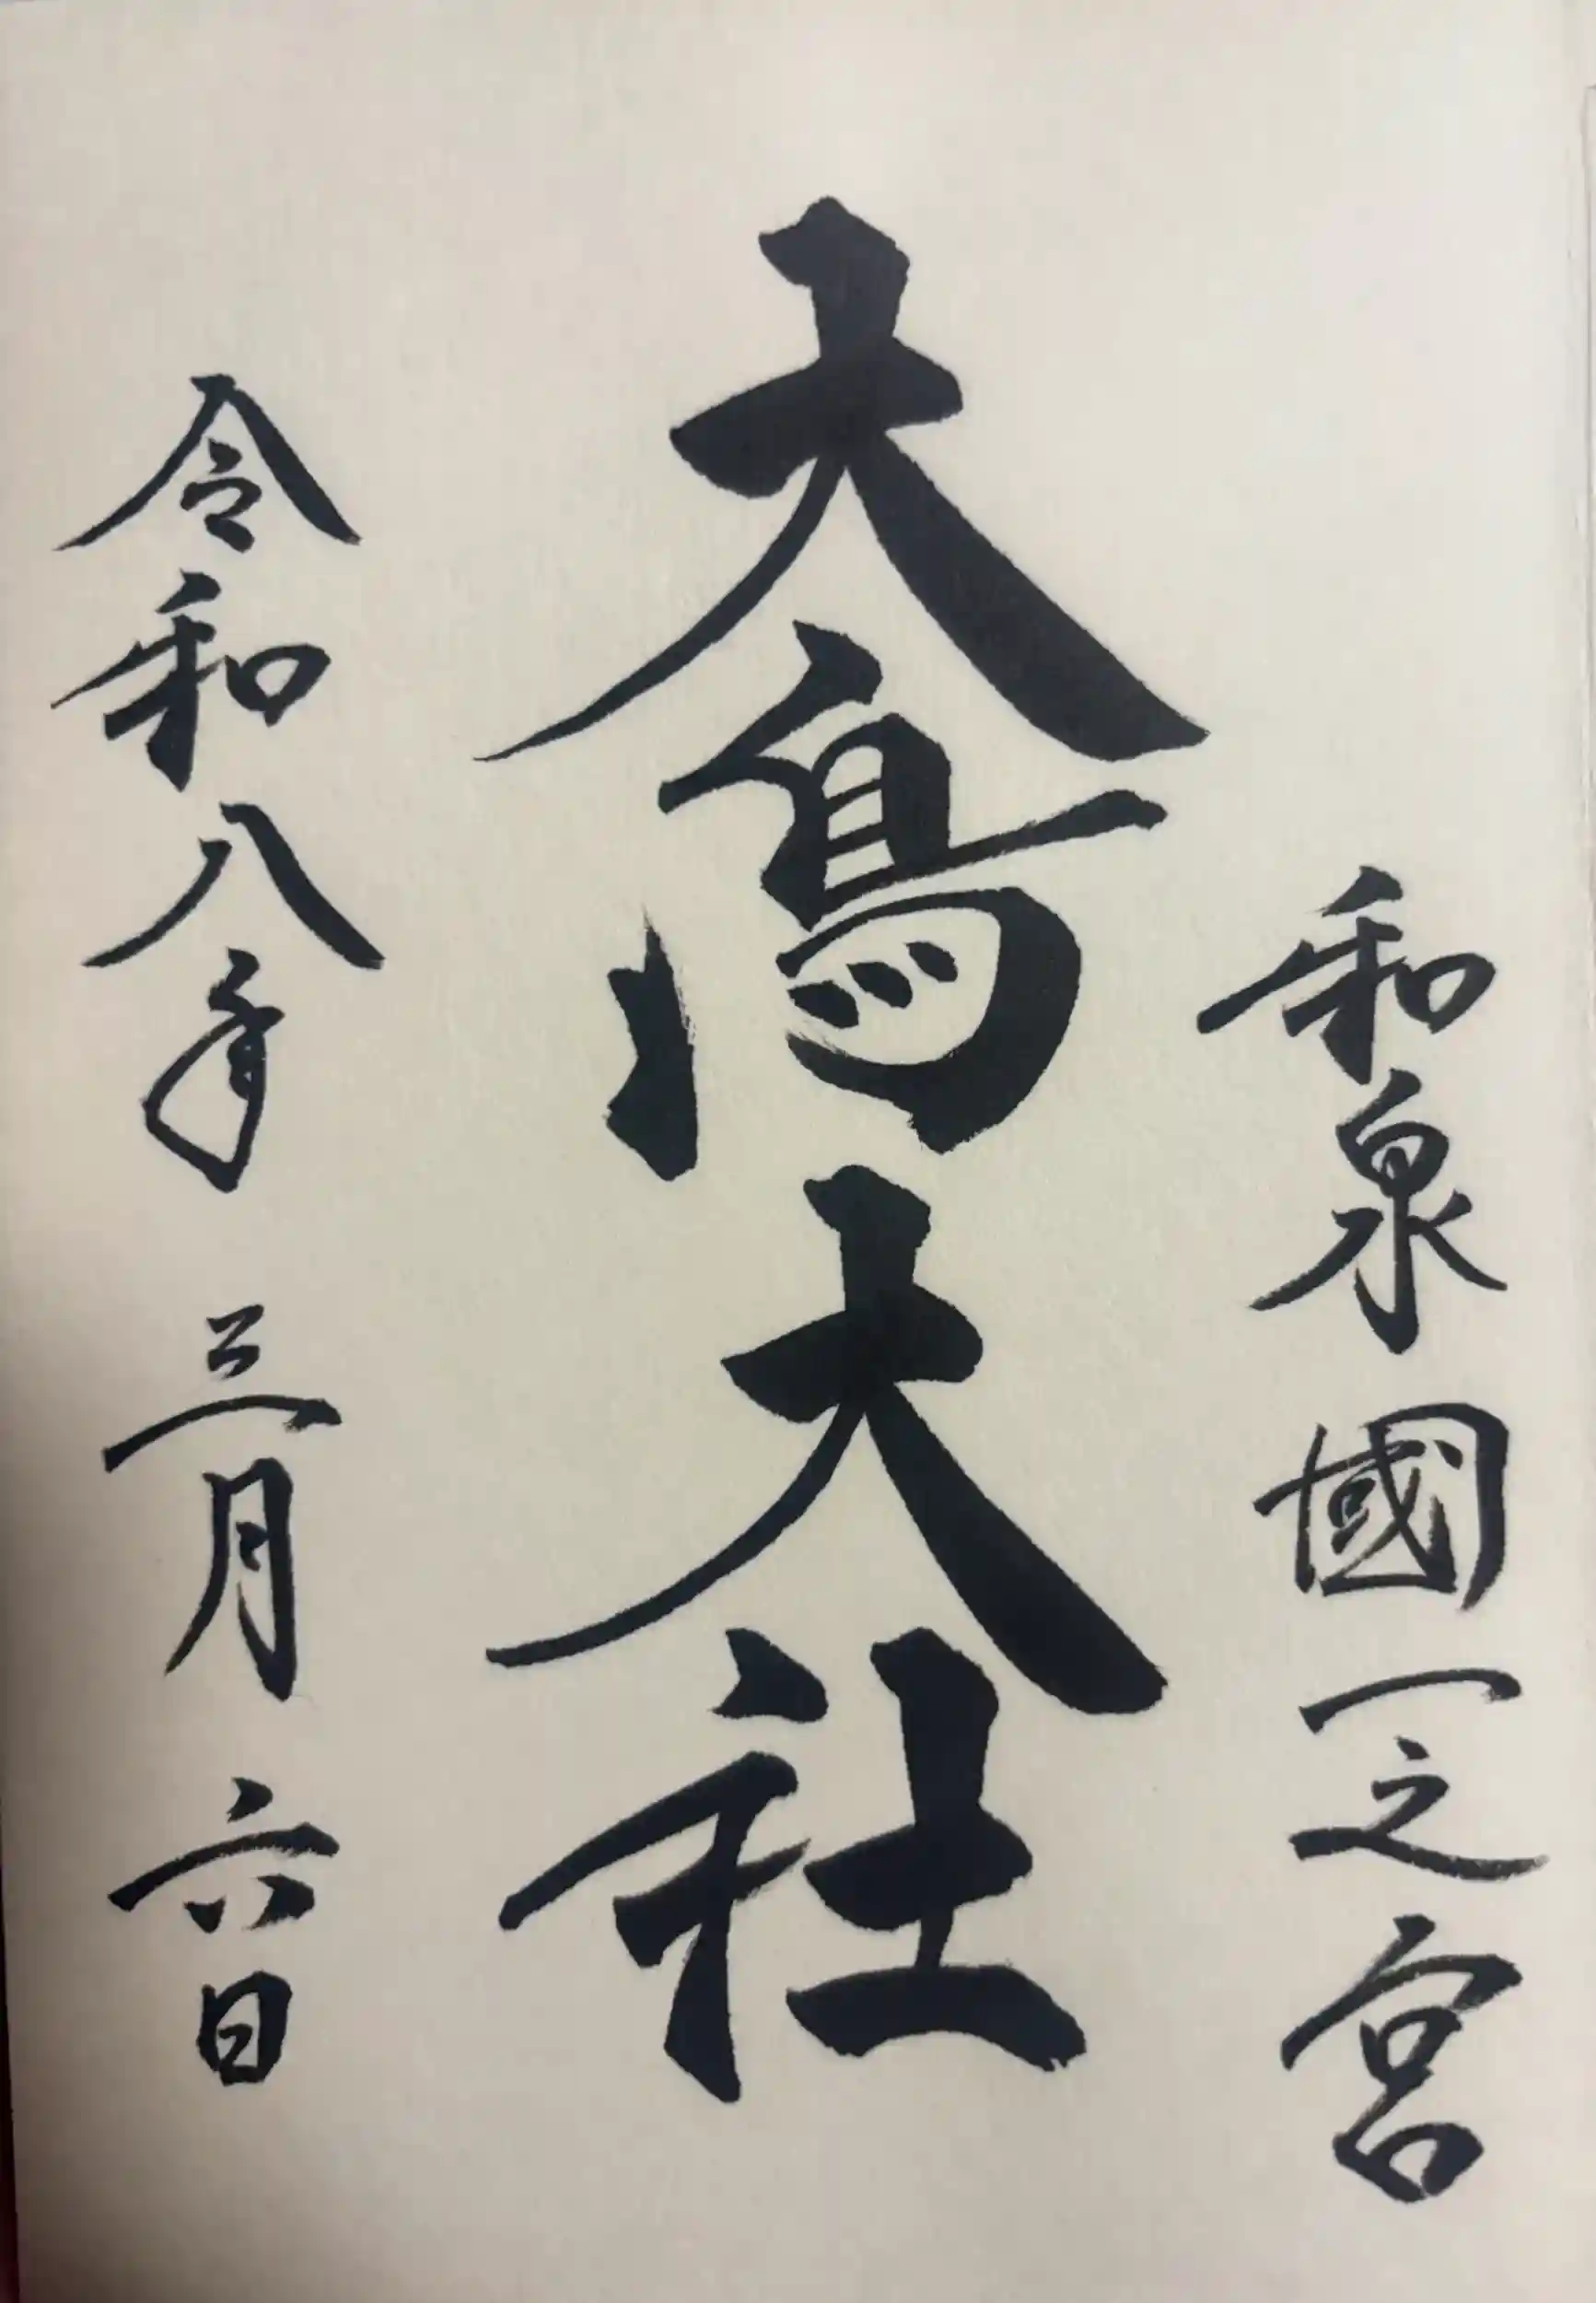 和泉國一之宮
大鳥大社
令和八年 三月 六日